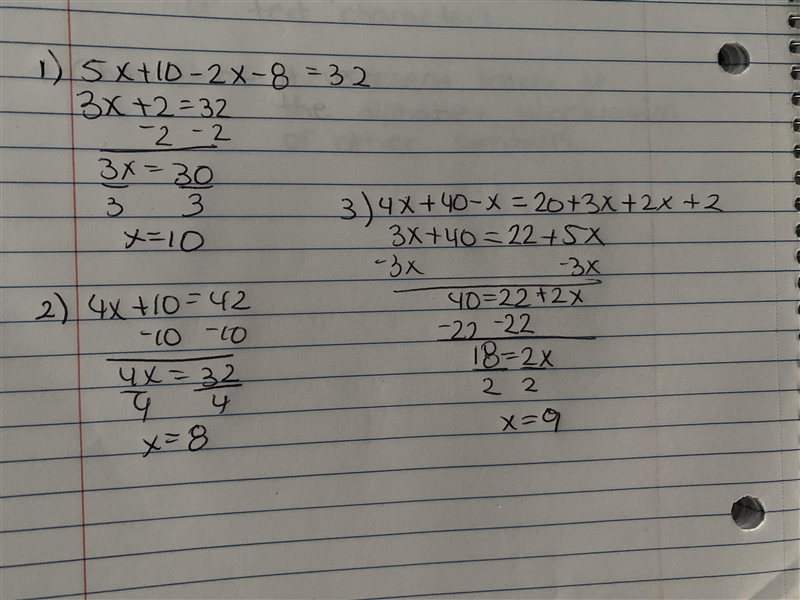 1) 5x+10-2x-8=32
3x+2=32
-2 -2
3x=30
3 3
x=10
2) 4x+10=42
-10 -10
4x=32
4 4
x=8
3) 4x+40-x=20+3x+2x+2
3x+40=22+5x
-3x -3x
40=22+2x
-22 -22
18=2x
2 2
x=9